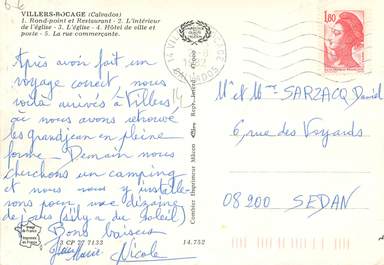 VILLERS-BOCAGE (Calvados)
1. Rond-point et Restaurant - 2. L'intérieur
de l'église - 3. L'église - 4. Hôtel de ville et
poste - 5. La rue commerçante.
Après avoir fait un
voyage correct nous
voilà arrivés à Villers
où nous avons retrouvé
les grandjean en pleine
forme. Demain nous
cherchons un camping
et nous nous y instal-
lerons pour une dizaine
de jours (s'il y a du soleil)
Bons baisers
Jean Marie Nicole
3 CP 77 7133
14.752
Combier Imprimeur Mâcon
1,80
Mr et Mme SARZACQ David
6 rue des Voyards
08200 SEDAN